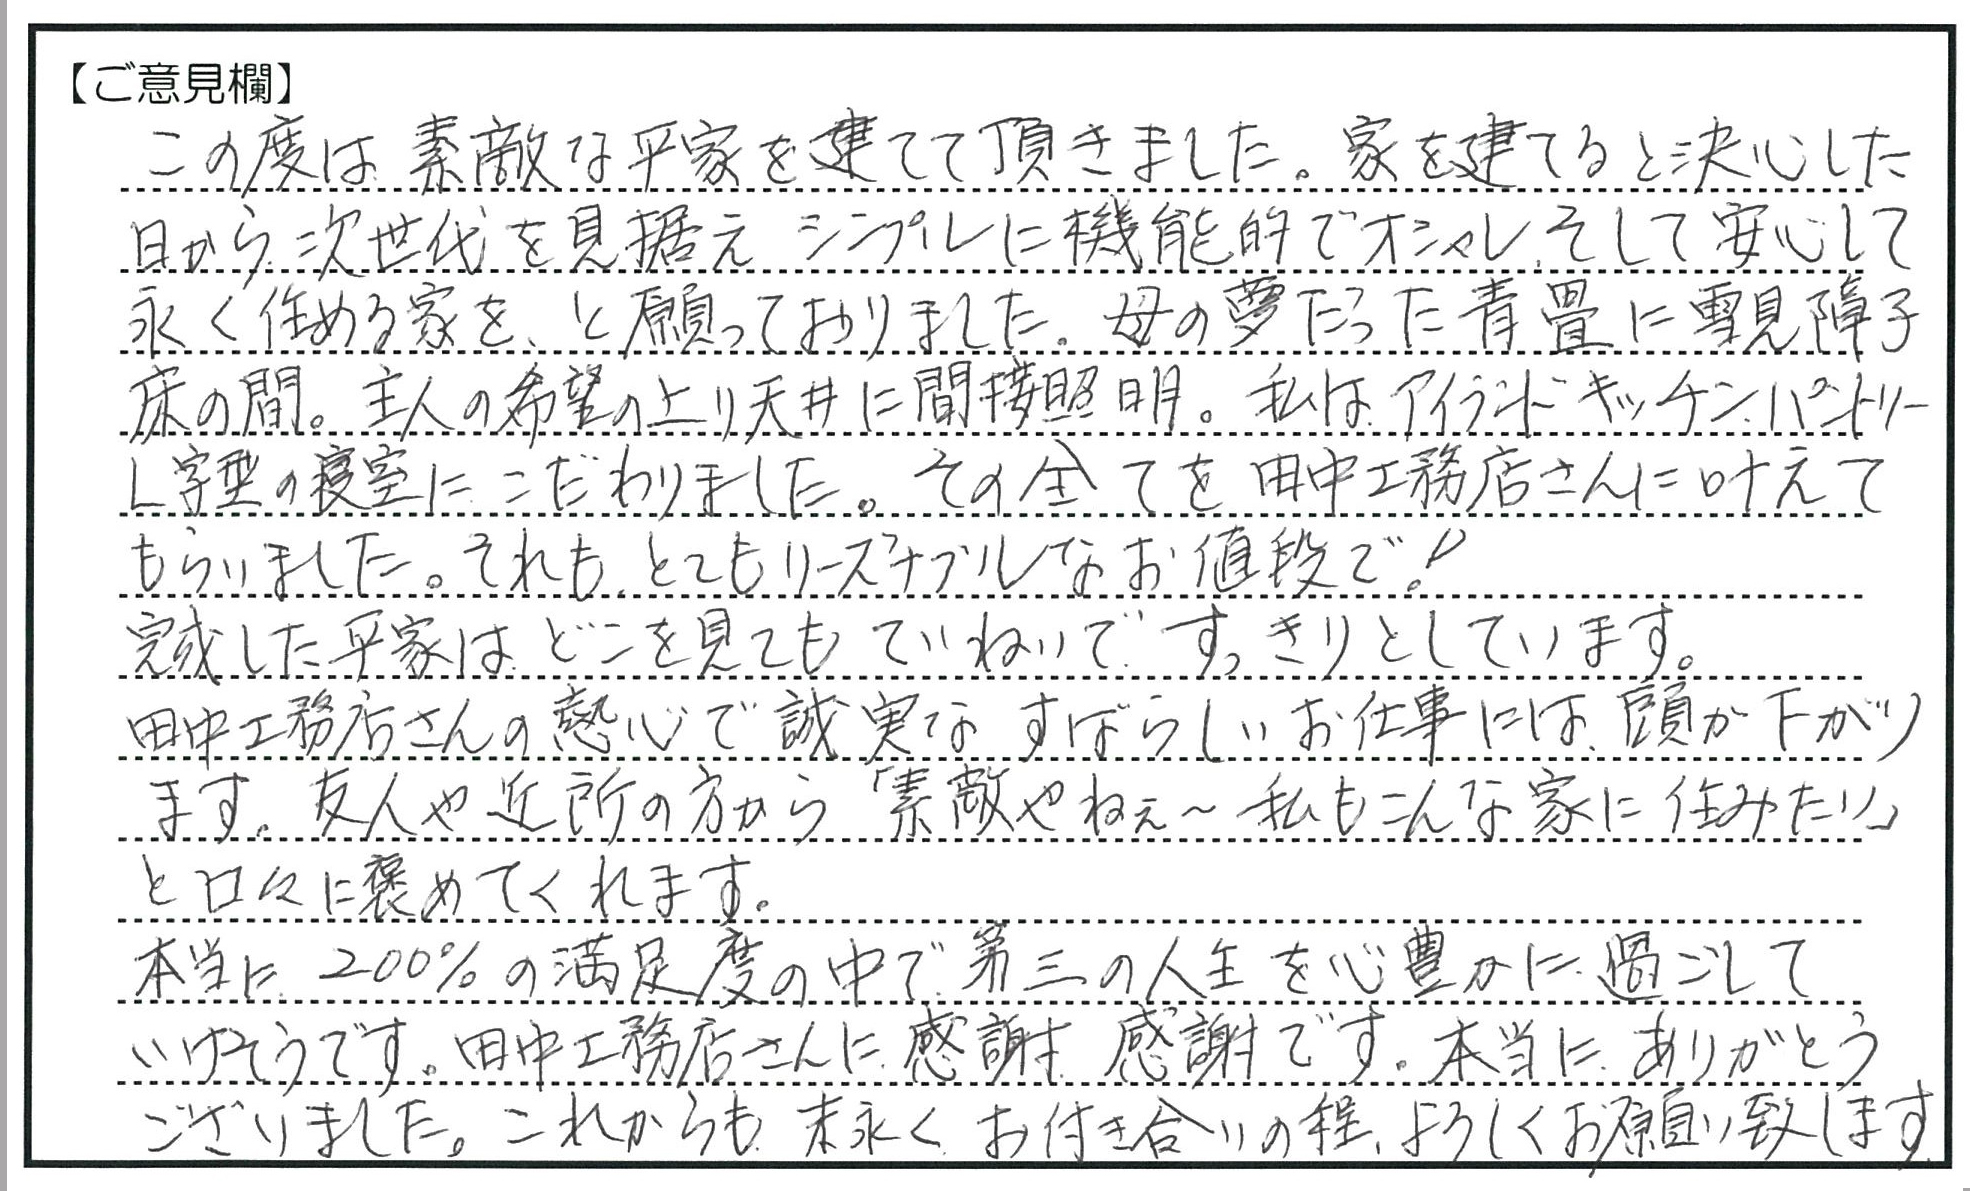 【ご意見欄】
この度は素敵な平家を建てて頂きました。家を建てると決心した
日から、次世代を見据え シンプルに機能的でオシャレ、そして安心して
永く住める家を、と願っておりました。母の夢だった青畳に雪見障子
床の間。主人の希望の上り天井に間接照明。私は、アイランドキッチン、パントリー
L字型の寝室にこだわりました。その全てを田中工務店さんに叶えて
もらいました。それも、とてもリーズナブルなお値段で!
完成した平家は、どこを見てもていねいで すっきりとしています。
田中工務店さんの熱心で誠実な すばらしいお仕事には、頭が下がり
ます。友人や近所の方から「素敵やねぇ~私もこんな家に住みたい」
と口々に褒めてくれます。
本当に 200%の満足度の中で 第三の人生を心豊かに過ごして
いけそうです。田中工務店さんに、感謝、感謝です。本当に、ありがとう
ございました。これからも、末永くお付き合いの程、よろしくお願い致します。